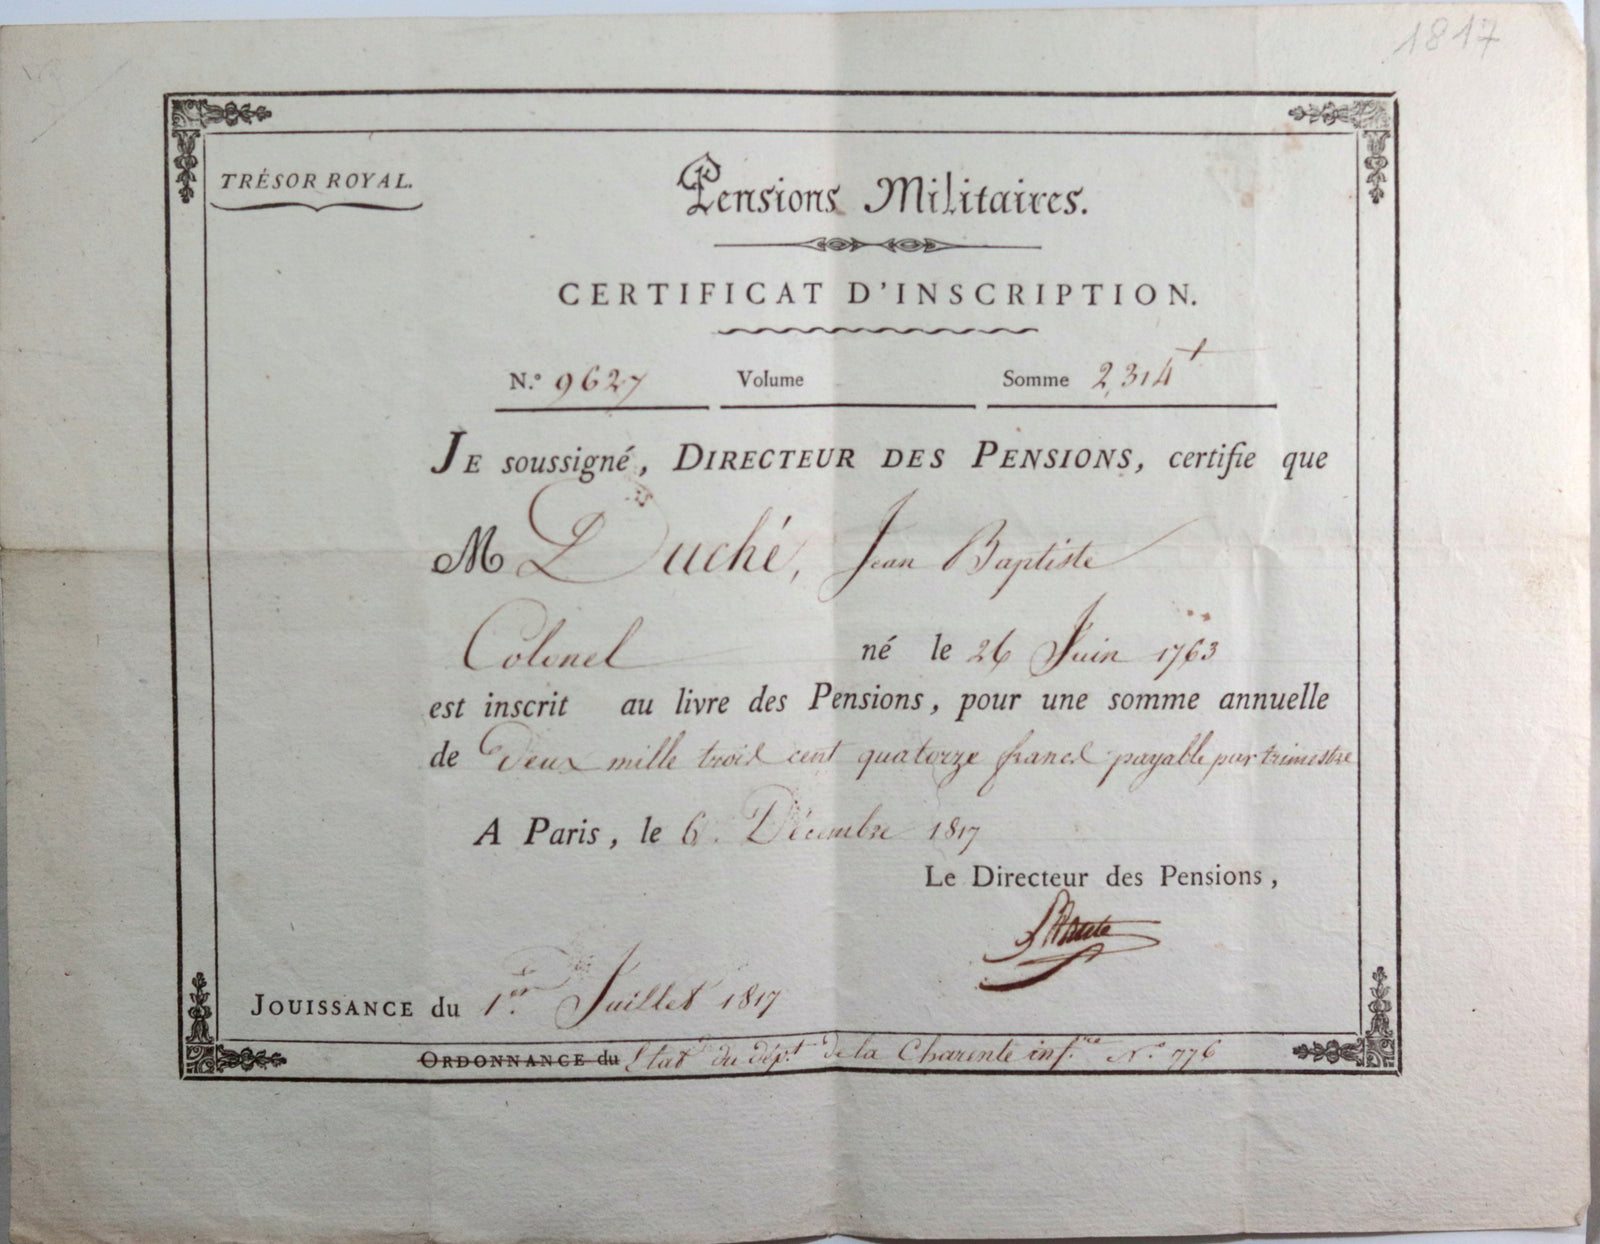 1817
TRÉSOR ROYAL.
Pensions Militaires.
CERTIFICAT D'INSCRIPTION.
N.° 9627 Volume Somme 2,314 f
JE soussigné, DIRECTEUR DES PENSIONS, certifie que
M Duché, Jean Baptiste
Colonel né le 26 Juin 1763
est inscrit au livre des Pensions, pour une somme annuelle
de deux mille trois cent quatorze francs payable par trimestre
A Paris, le 6 Décembre 1817
Le Directeur des Pensions,
JOUISSANCE du 1.er Juillet 1817
ORDONNANCE du Etat du dép.t de la Charente inf.re N.° 776